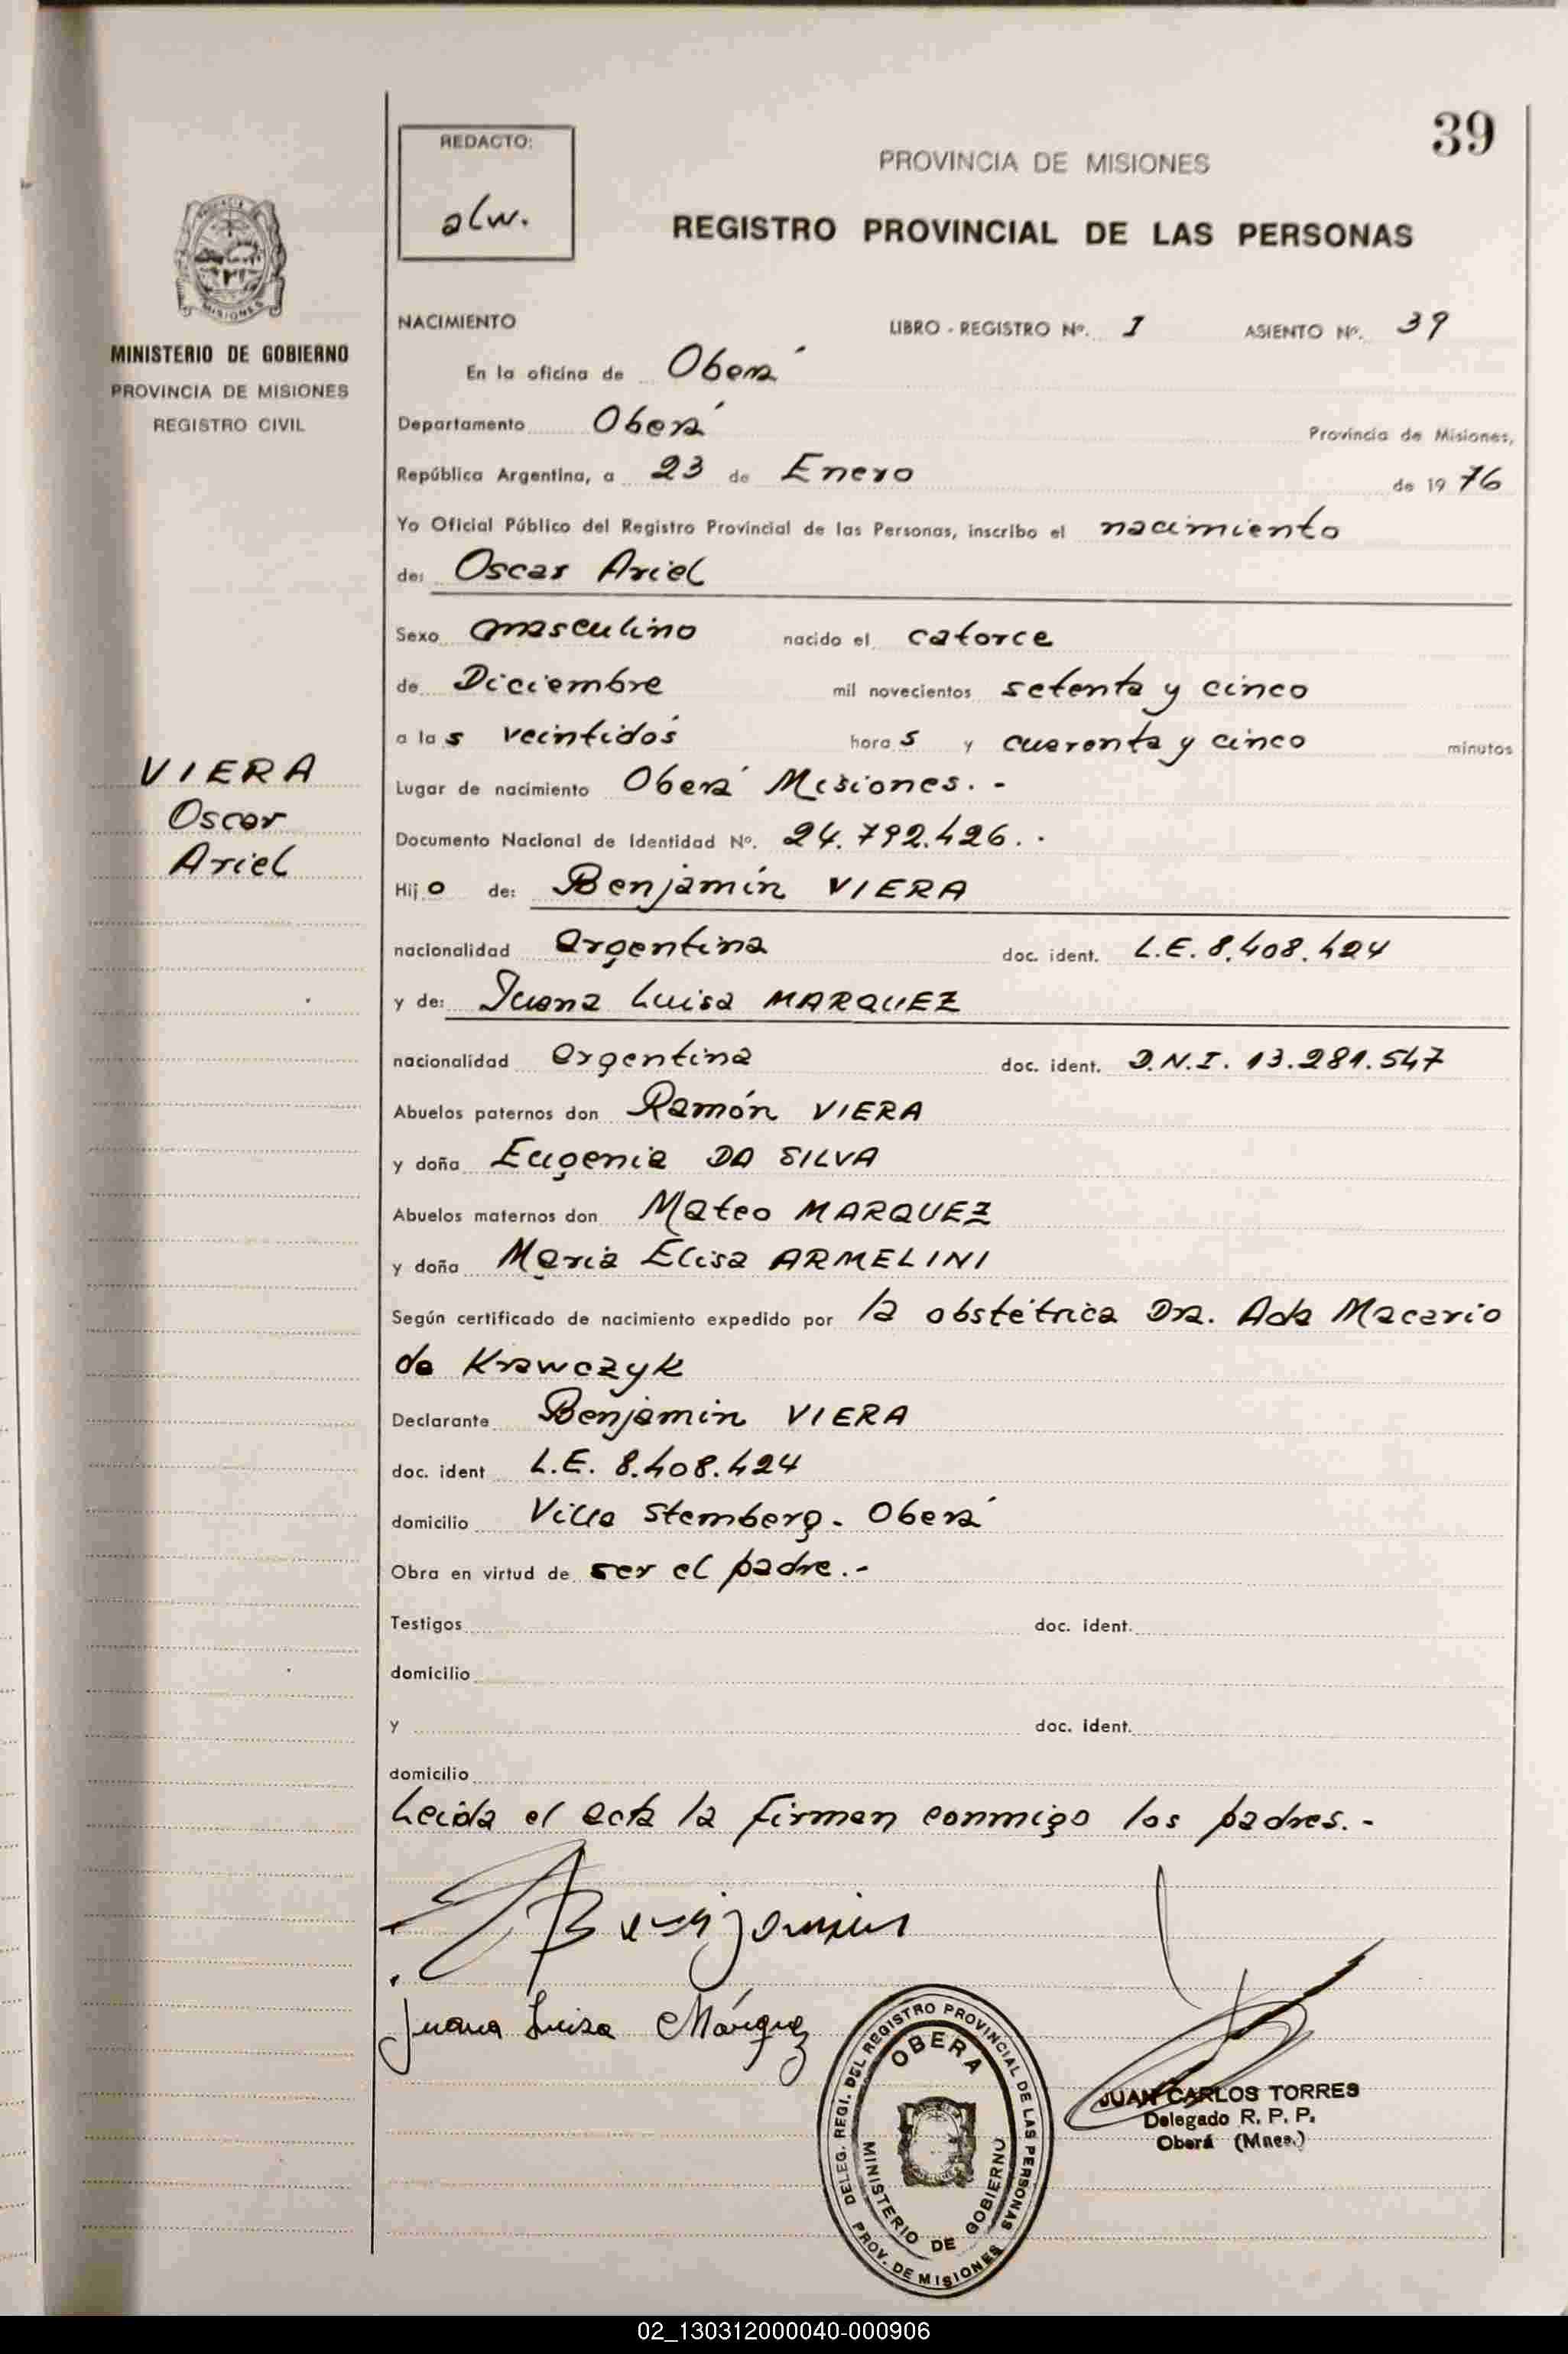 39
REDACTO:
alw.
PROVINCIA DE MISIONES
REGISTRO PROVINCIAL DE LAS PERSONAS
MISIONES
MINISTERIO DE GOBIERNO
PROVINCIA DE MISIONES
REGISTRO CIVIL
VIERA
Oscar
Ariel
NACIMIENTO LIBRO - REGISTRO Nº. I ASIENTO Nº. 39
En la oficina de Oberá
Departamento Oberá Provincia de Misiones,
República Argentina, a 23 de Enero de 1976
Yo Oficial Público del Registro Provincial de las Personas, inscribo el nacimiento
de: Oscar Ariel
Sexo masculino nacido el catorce
de Diciembre mil novecientos setenta y cinco
a las veintidós horas y cuarenta y cinco minutos
Lugar de nacimiento Oberá Misiones. -
Documento Nacional de Identidad Nº. 24.792.426. -
Hijo de: Benjamín VIERA
nacionalidad argentina doc. ident. L.E. 8.408.424
y de: Juana Luisa MARQUEZ
nacionalidad argentina doc. ident. D.N.I. 13.281.547
Abuelos paternos don Ramón VIERA
y doña Eugenia DA SILVA
Abuelos maternos don Mateo MARQUEZ
y doña María Elisa ARMELINI
Según certificado de nacimiento expedido por la obstétrica Dra. Ada Macario
de Krawczyk
Declarante Benjamin VIERA
doc. ident L.E. 8.408.424
domicilio Villa Stemberg. Oberá
Obra en virtud de ser el padre. -
Testigos doc. ident.
domicilio
y doc. ident.
domicilio
Leida el acta la firman conmigo los padres. -
Benjamin
Juana Luisa Márquez
DELEG. REGI. DEL REGISTRO PROVINCIAL DE LAS PERSONAS
OBERA
MINISTERIO DE GOBIERNO
PROV. DE MISIONES
JUAN CARLOS TORRES
Delegado R. P. P.
Oberá (Mnes.)
02_130312000040-000906